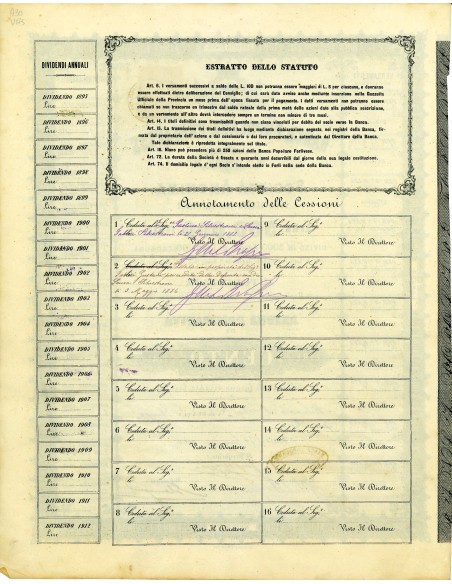 DIVIDENDI ANNUALI
DIVIDENDO 1895
Lire
DIVIDENDO 1896
Lire
DIVIDENDO 1897
Lire
DIVIDENDO 1898
Lire
DIVIDENDO 1899
Lire
DIVIDENDO 1900
Lire
DIVIDENDO 1901
Lire
DIVIDENDO 1902
Lire
DIVIDENDO 1903
Lire
DIVIDENDO 1904
Lire
DIVIDENDO 1905
Lire
DIVIDENDO 1906
Lire
DIVIDENDO 1907
Lire
DIVIDENDO 1908
Lire
DIVIDENDO 1909
Lire
DIVIDENDO 1910
Lire
DIVIDENDO 1911
Lire
DIVIDENDO 1912
Lire
ESTRATTO DELLO STATUTO
Art. 9. I versamenti successivi a saldo delle L. 100 non potranno essere maggiori di L. 5 per ciascuno, e dovranno
essere effettuati dietro deliberazione del Consiglio; di cui sarà dato avviso anche mediante inserzione nella Gazzetta
Ufficiale della Provincia un mese prima dell' epoca fissata per il pagamento. I detti versamenti non potranno essere
chiamati se non trascorso un trimestre dal saldato rateale della prima metà delle azioni date alla pubblica
e da un versamento all' altro dovrà intercedere sempre un termine non minore di tre mesi.
Art. 14. I titoli definitivi sono trasmissibili quando non siano vincolati per debito del socio verso la Banca.
Art. 15. La trasmissione dei titoli definitivi ha luogo mediante dichiarazione segnata, nei registri della Banca, firmata
dal proprietario dell' azione e dal cessionario o dai loro procuratori, e autenticata dal Direttore della Banca.
Tale dichiarazione è riprodotta integralmente sul titolo.
Art. 16. Niuno può possedere più di 250 azioni della Banca Popolare Forlivese.
Art. 72. La durata della Società è fissata a quaranta anni decorribili dal giorno della sua legale costituzione.
Art. 74. Il domicilio legale d' ogni Socio s' intende eletto in Forlì nella sede della Banca.
Annotamento delle Cessioni
1 Ceduta al Sig.r
lì 1882
Visto Il Direttore
2 Ceduta al Sig.r
lì 2 Maggio
Visto Il Direttore
3 Ceduta al Sig.r
lì
Visto Il Direttore
4 Ceduta al Sig.r
lì
Visto Il Direttore
5 Ceduta al Sig.r
lì
Visto Il Direttore
6 Ceduta al Sig.r
lì
Visto Il Direttore
7 Ceduta al Sig.r
lì
Visto Il Direttore
8 Ceduta al Sig.r
lì
Visto Il Direttore
9 Ceduta al Sig.r
lì
Visto Il Direttore
10 Ceduta al Sig.r
lì
Visto Il Direttore
11 Ceduta al Sig.r
lì
Visto Il Direttore
12 Ceduta al Sig.r
lì
Visto Il Direttore
13 Ceduta al Sig.r
lì
Visto Il Direttore
14 Ceduta al Sig.r
lì
Visto Il Direttore
15 Ceduta al Sig.r
lì
Visto Il Direttore
16 Ceduta al Sig.r
lì
Visto Il Direttore